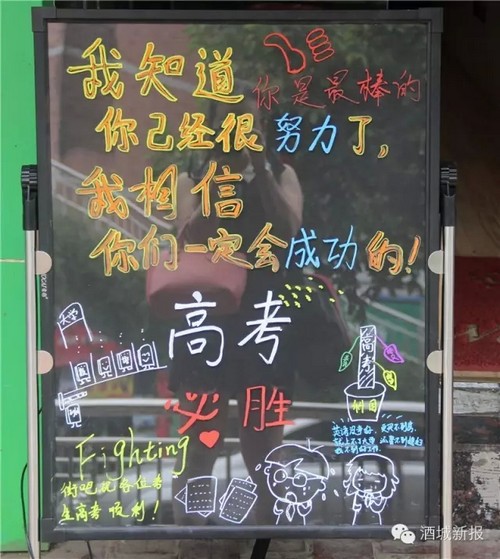 我知道
你是最棒的
你已经很努力了,
我相信
你们一定会成功的!
高考
必胜
大学
高考
Fighting
街吧祝各位考
生高考顺利!
酒城新报